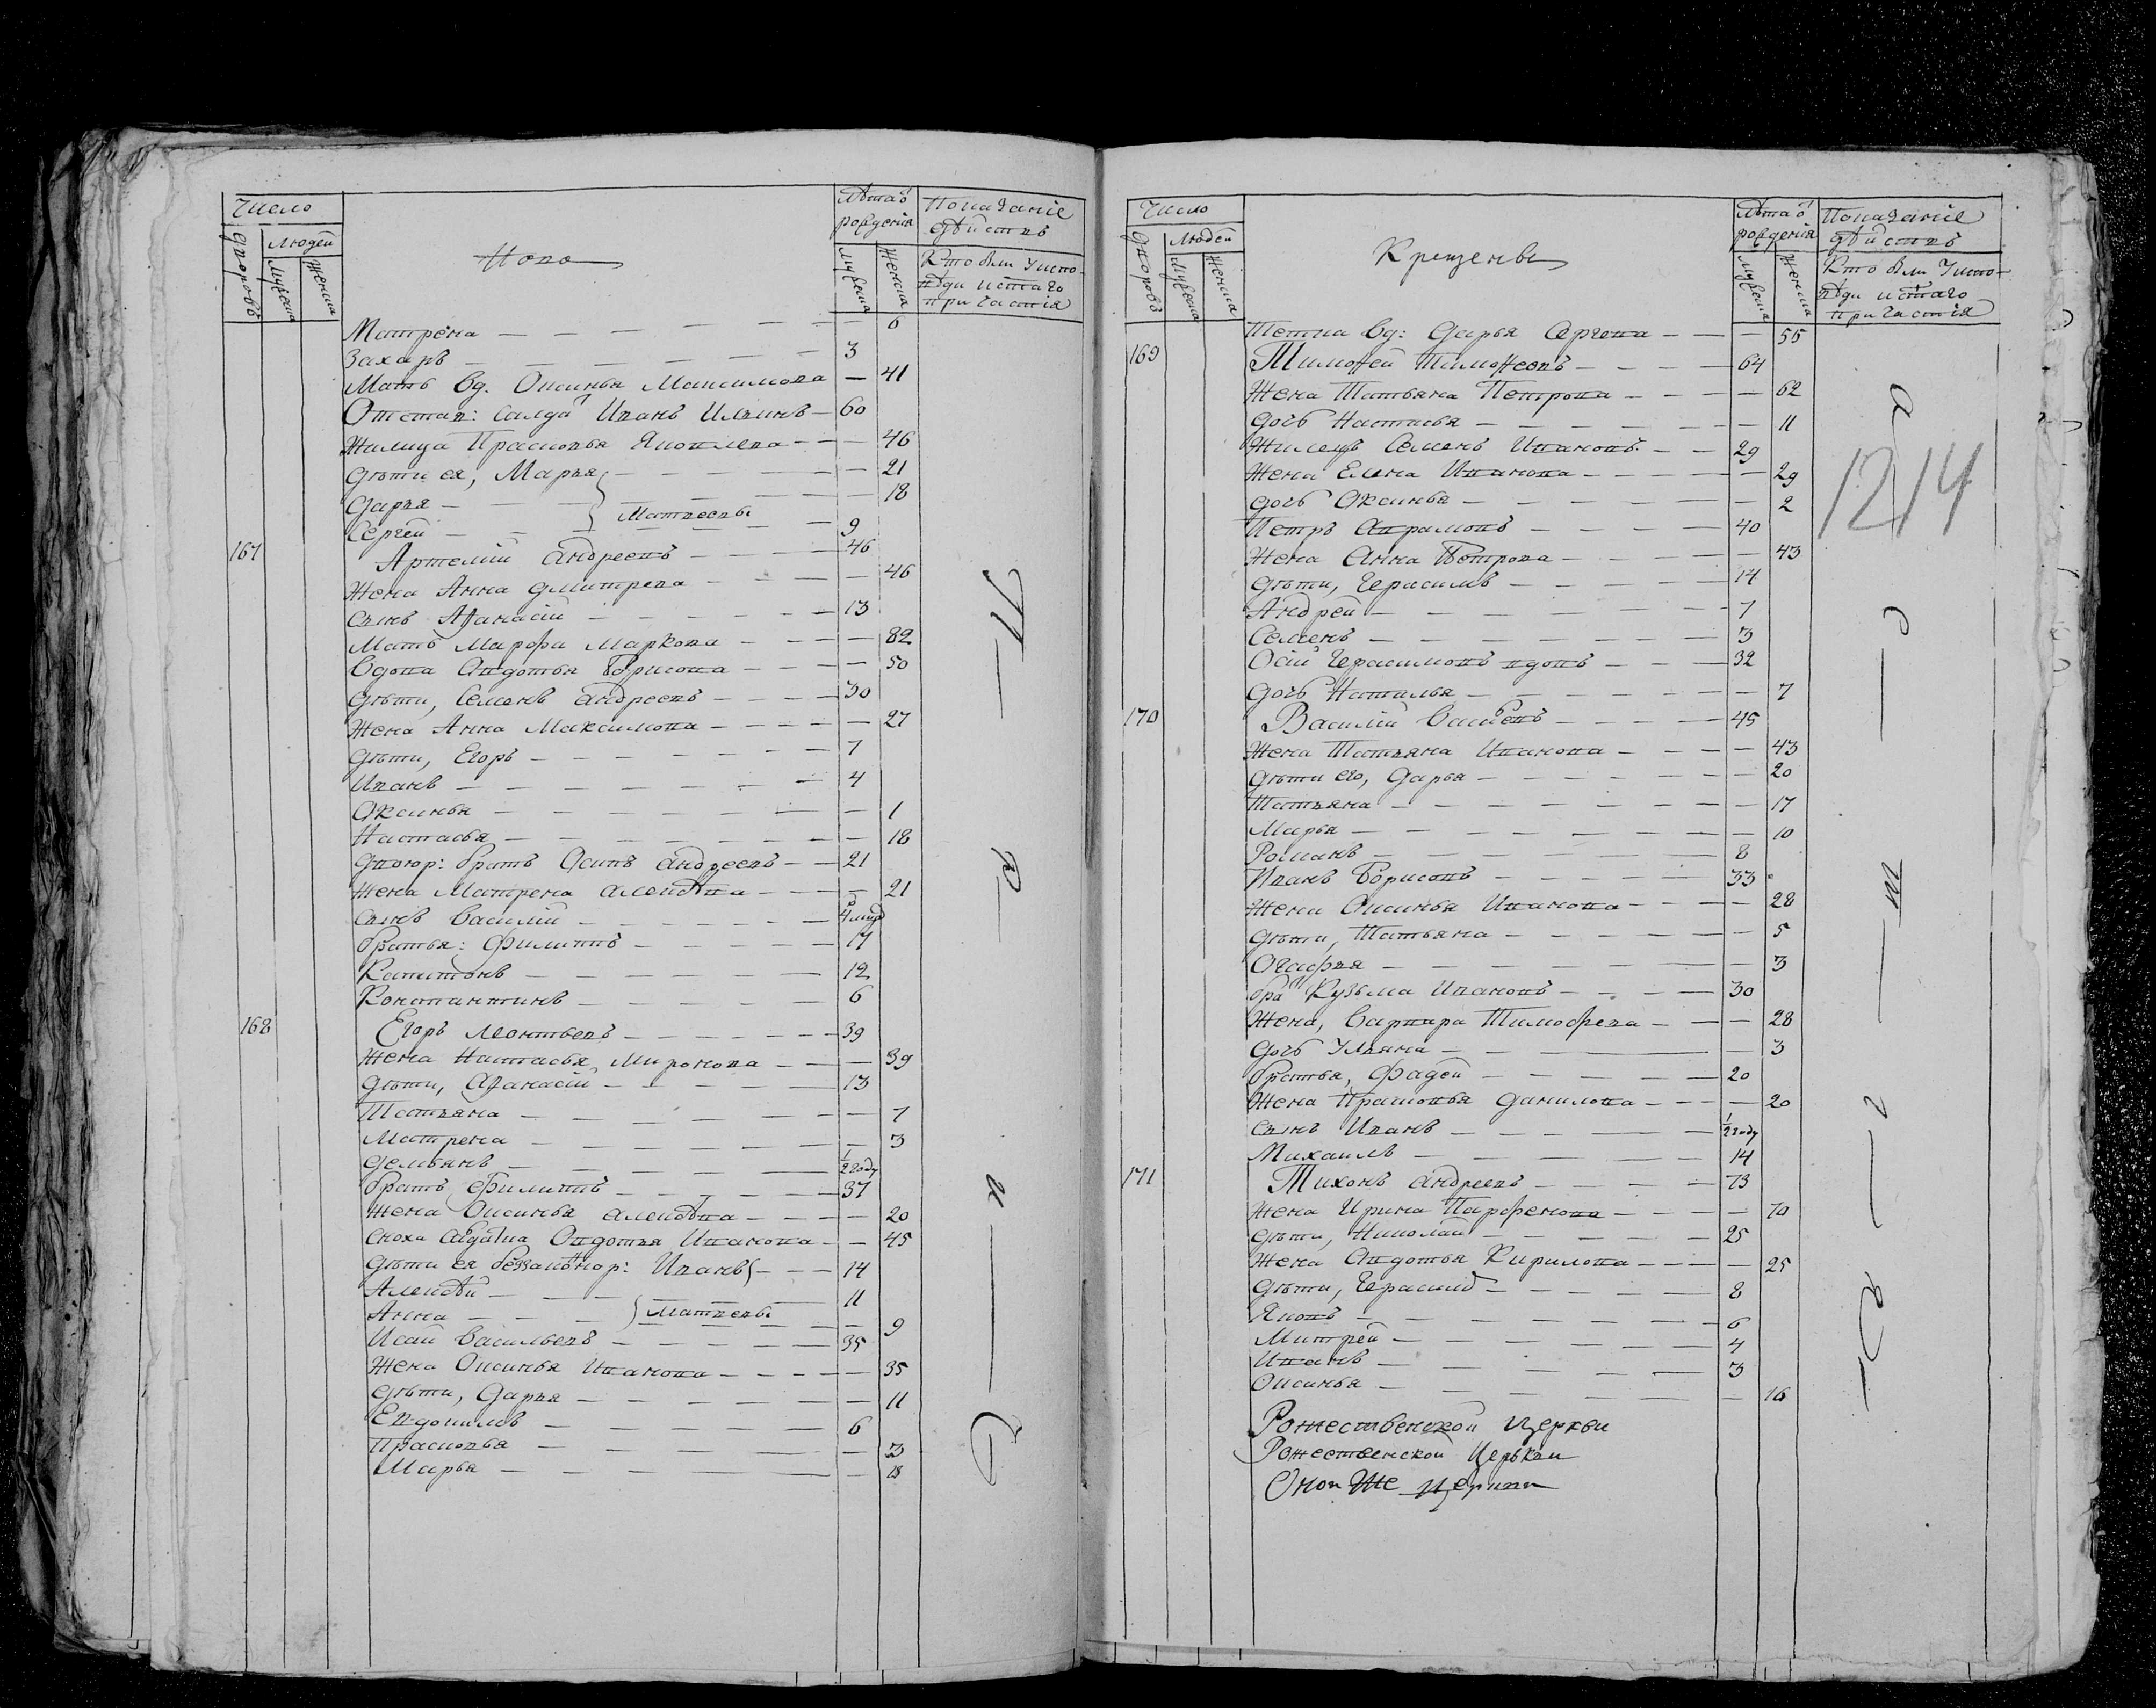 Число
дворовъ
Людей
Мужеска
Женска
Ново
Лѣта ѿ рожденія
Мужеска
Женска
Показаніе дѣйствъ
Кто были у испо-
вѣди и с̃таго
причастія
Матрена — 6
Захаръ — 3
Мать вд. Оксинья Максимова — 41
Отстав: салда Иванъ Ильинъ — 60
Жилица Прасковья Яковлева — 46
дѣти ея, Марья — 21
Дарья — 18
Матвеевы
Сергей — 9
167 Артемій Андреевъ — 46
Жена Анна Дмитрева — 46
сынъ Афанасій — 13
Мать Марфа Маркова — 82
Вдова Авдотья Борисова — 50
дѣти, Семенъ Андреевъ — 30
Жена Анна Максимова — 27
дѣти, Егоръ — 7
Иванъ — 4
Оксинья — 1
Настасья — 18
двоюр: братъ Осипъ Андреевъ — 21
Жена Матрена Алексѣва — 21
сынъ Василій —
братья: Филиппъ — 17
Капитонъ — 12
Константинъ — 6
168 Егоръ Леонтьевъ — 39
Жена Настасья Миронова — 39
дѣти, Афанасій — 13
Татьяна — 7
Матрена — 3
Демьянъ — 1/2 году
братъ Филиппъ — 37
Жена Оксинья Алексѣва — 20
сноха Авдотья Иванова — 45
дѣти ея Иванъ — 14
Алексѣй — 11
Матвеевы
Анна — 9
Исай Васильевъ — 35
Жена Оксинья Иванова — 35
дѣти, Дарья — 11
Евдокимъ — 6
Прасковья — 3
Марья —
П
р
и
Число
дворовъ
Людей
Мужеска
Женска
Крещены
Лѣта ѿ рожденія
Мужеска
Женска
Показаніе дѣйствъ
Кто были у испо-
вѣди и с̃таго
причастія
1214
Тетка вд: Дарья Сергева — 55
169 Тимоѳей Тимоѳеевъ — 64
Жена Татьяна Петрова — 62
дочь Настасья — 11
Жилецъ Семенъ Ивановъ — 29
Жена Елена Иванова — 29
дочь Оксинья — 2
Петръ Аврамовъ — 40
Жена Анна Петрова — 43
дѣти, Герасимъ — 14
Андрей — 7
Семенъ — 3
Осій Герасимовъ вдовъ — 32
дочь Наталья — 7
170 Василій — 45
Жена Татьяна Иванова — 43
дѣти его, Дарья — 20
Татьяна — 17
Марья — 10
Романъ — 8
Иванъ Борисовъ — 33
Жена Оксинья Иванова — 28
дѣти, Татьяна — 5
Огафья — 3
бра Кузьма Ивановъ — 30
Жена, Варвара Тимофева — 28
дочь Ульяна — 3
братья, Фадей — 20
Жена Прасковья Данилова — 20
сынъ Иванъ — 1/2 году
Михаилъ — 14
171 Тихонъ Андреевъ — 73
Жена Ирина Парфенова — 70
дѣти, Николай — 25
Жена Авдотья Кирилова — 25
дѣти, Герасимъ — 8
Яковъ — 6
Митрей — 4
Иванъ — 3
Оксинья — 16
Рожественской церкви
Рожественской церькви
Оной же церкви